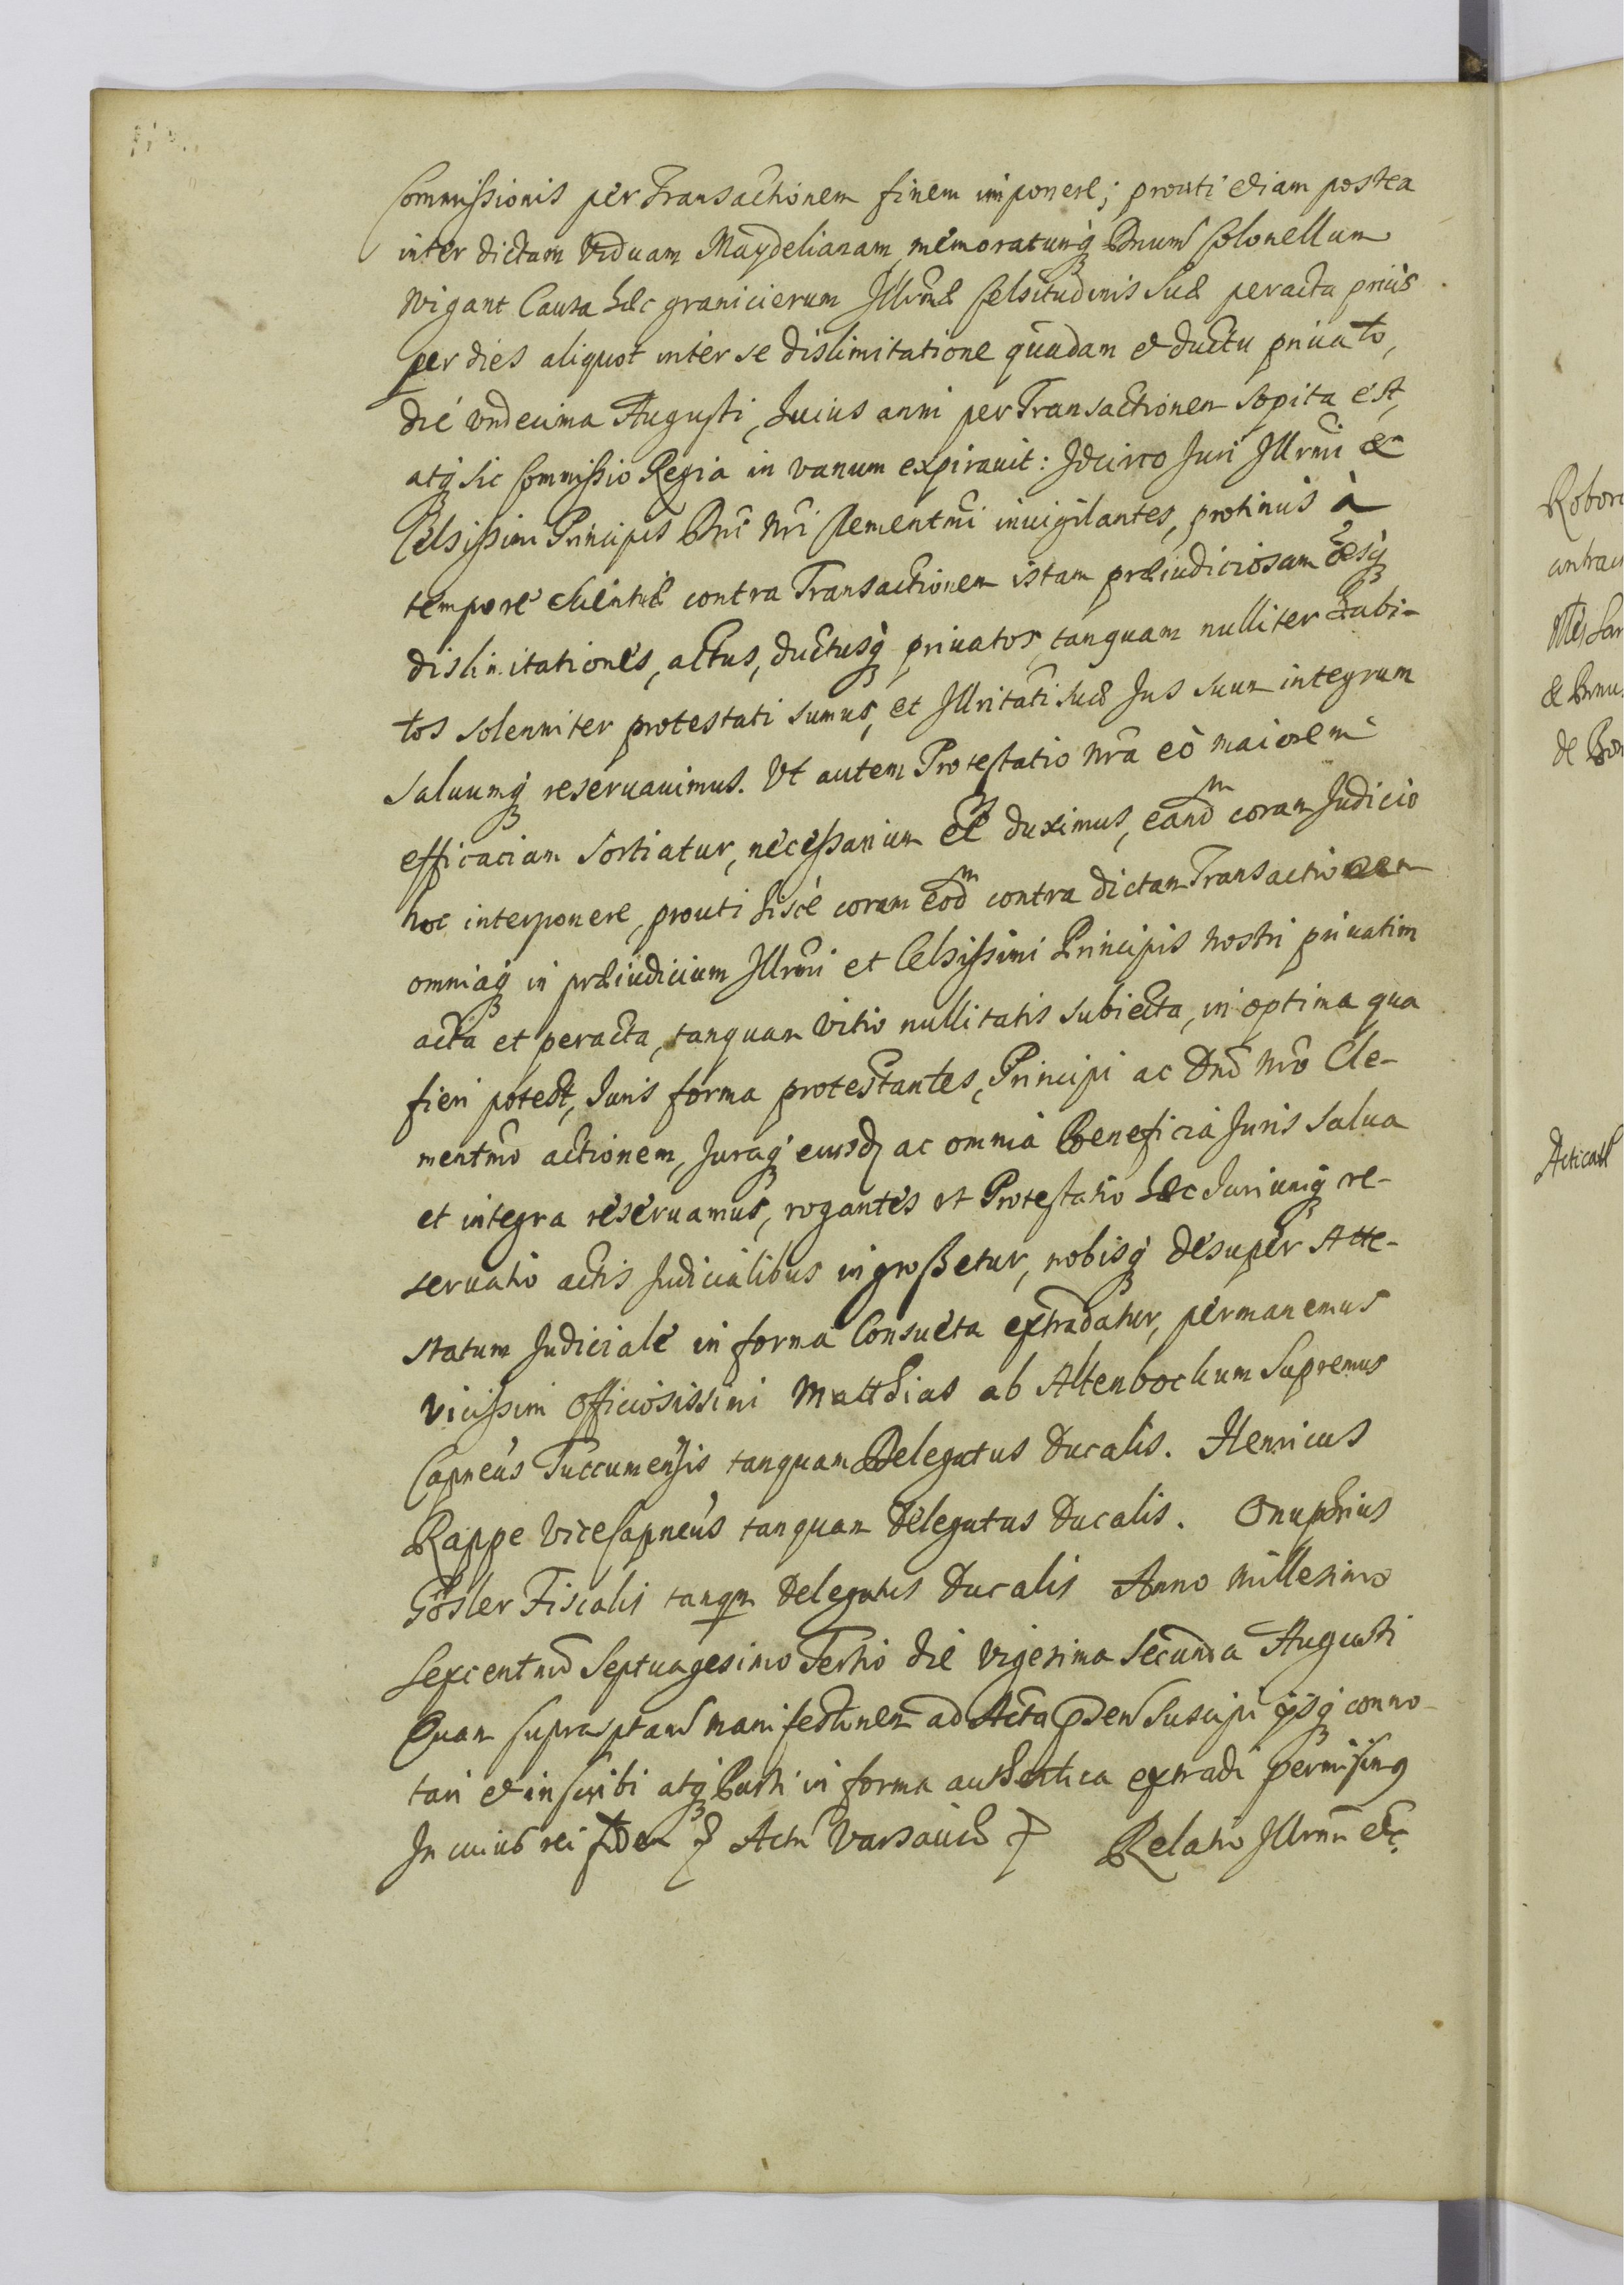 Commissionis per Transactionem finem imponere; prouti etiam postea
inter dictam Viduam Maydelianam memoratumq Dnum Colonellum
Wigant Causa haec granicierum Illrmae Celsitudinis Suae peracta prius
per dies aliquot inter se dislimitatione quadam et ductu priuato,
die vndecima Augusti, huius anni per Transactionem sopita est,
atq sic Commissio Regia in vanum expirauit: Idcirco Juri Illrmi &
Celsissimi Principis Dni Nri Clementmi inuigilantes, protinus à
tempore scientiae contra Transactionem istam praeiudiciosam oesq
dislimitationes, actus, ductusq priuatos tanquam nulliter habi-
tos solenniter protestati sumus, et Illritati Suae Jus suum integrum
saluumq reseruauimus. Vt autem Protestatio nra eò maiorem
efficaciam sortiatur, necessarium ee duximus, eandm coram Judicio
hoc interponere, prouti hisce coram eodm contra dictam Transactionem
omniaq in praeiudicium Illrmi et Celsissimi Principis nostri priuatim
acta et peracta, tanquam vitio nullitatis subiecta, in optima qua
fieri potest, Juris forma protestantes, Principi ac Dno Nro Cle-
mentmo actionem, Juraq eiusd ac omnia Beneficia Juris salua
et integra reseruamus, rogantes vt Protestatio haec Juriumq re-
seruatio actis Judicialibus ingrossetur, nobisq desuper Atte-
statum Judiciale in forma Consueta extradatur, permanemus
vicissim Officiosissimi Matthias ab Altenbockum Supremus
Capneus Tuccumensis tanquam Delegatus Ducalis. Henricus
Rappe ViceCapneus tanquam Delegatus Ducalis. Onuphrius
Gösler Fiscalis tanqm Delegatus Ducalis Anno Millesimo
Sexcentmo Septuagesimo Tertio die vigesima secunda Augusti
Quam suprasptam manifestonem ad Acta pden suscipi ijsq conno-
tari et inscribi atq Parti in forma authentica extradi permisimus
In cuius rei fidem Actu Varsauiae Relatio Illrmi etc.
Robor
Acticat